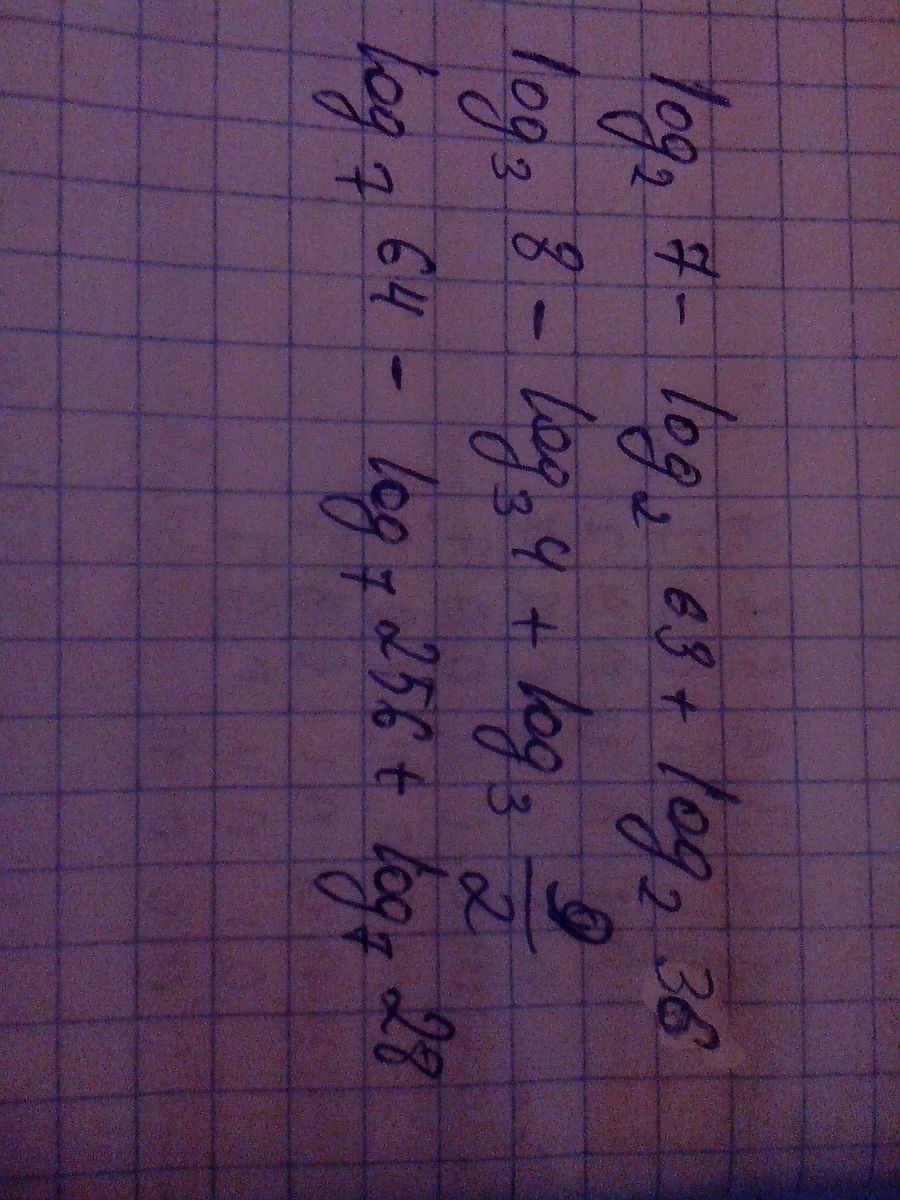 log₂ 7 - log₂ 63 + log₂ 36
log₃ 8 - log₃ 4 + log₃ 9/2
log₇ 64 - log₇ 256 + log₇ 28